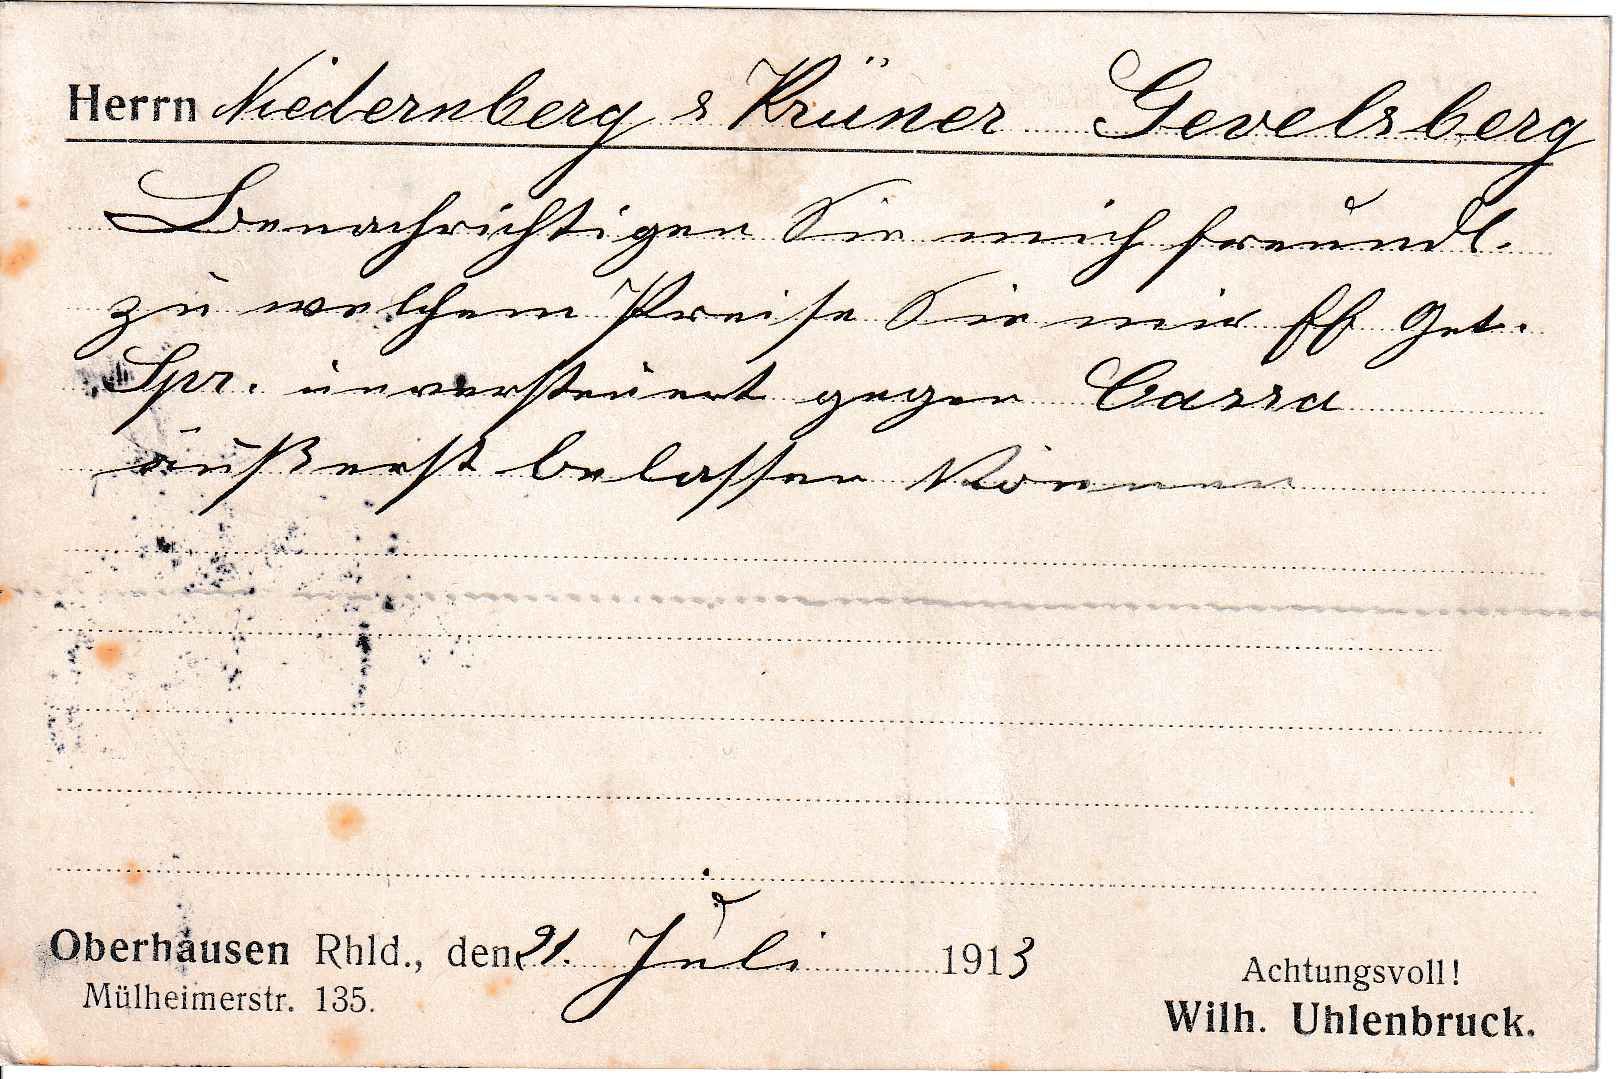 Herrn Niedernberg & Krüner Gevelsberg
Benachrichtigen Sie mich freundl.
zu welchem Preise Sie mir ff Get.
Spr. unversteuert gegen Cassa
äußerst belassen können
Oberhausen Rhld., den 21. Juli 1913
Mülheimerstr. 135.
Achtungsvoll!
Wilh. Uhlenbruck.